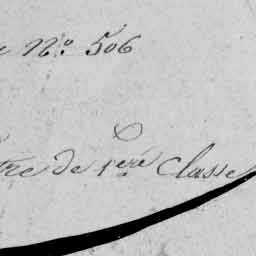 N.o 506
tre de 1ere Classe